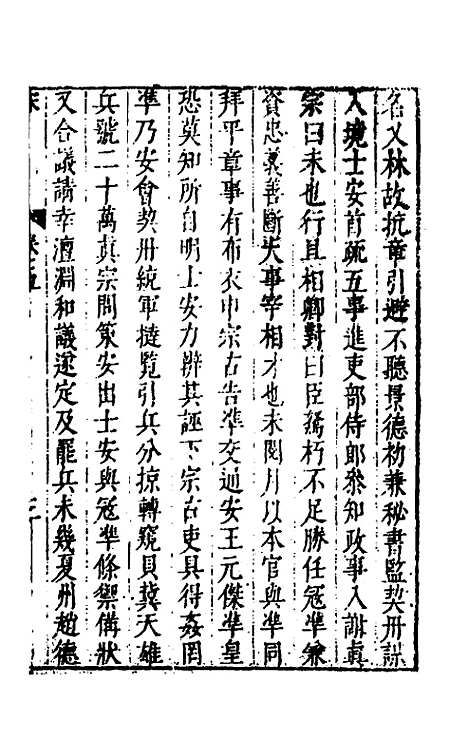 名乂林故抗章引避不聽景德初兼秘書監契丹謀
入境士安首疏五事進吏部侍郎叅知政事入謝眞
宗曰未也行且相卿對曰臣駑朽不足勝任寇準兼
資忠義善斷大事宰相才也未閱月以本官與準同
拜平章事有布衣申宗古告準交通安王元傑準皇
恐莫知所自明士安力辨其誣下宗古吏具得姦罔
準乃安會契丹統軍撻覽引兵分掠轉窺貝冀天雄
兵號二十萬真宗問策安出士安與寇準條禦備狀
又合議請幸澶淵和議遂定及罷兵未幾夏州趙德
卷之五 三